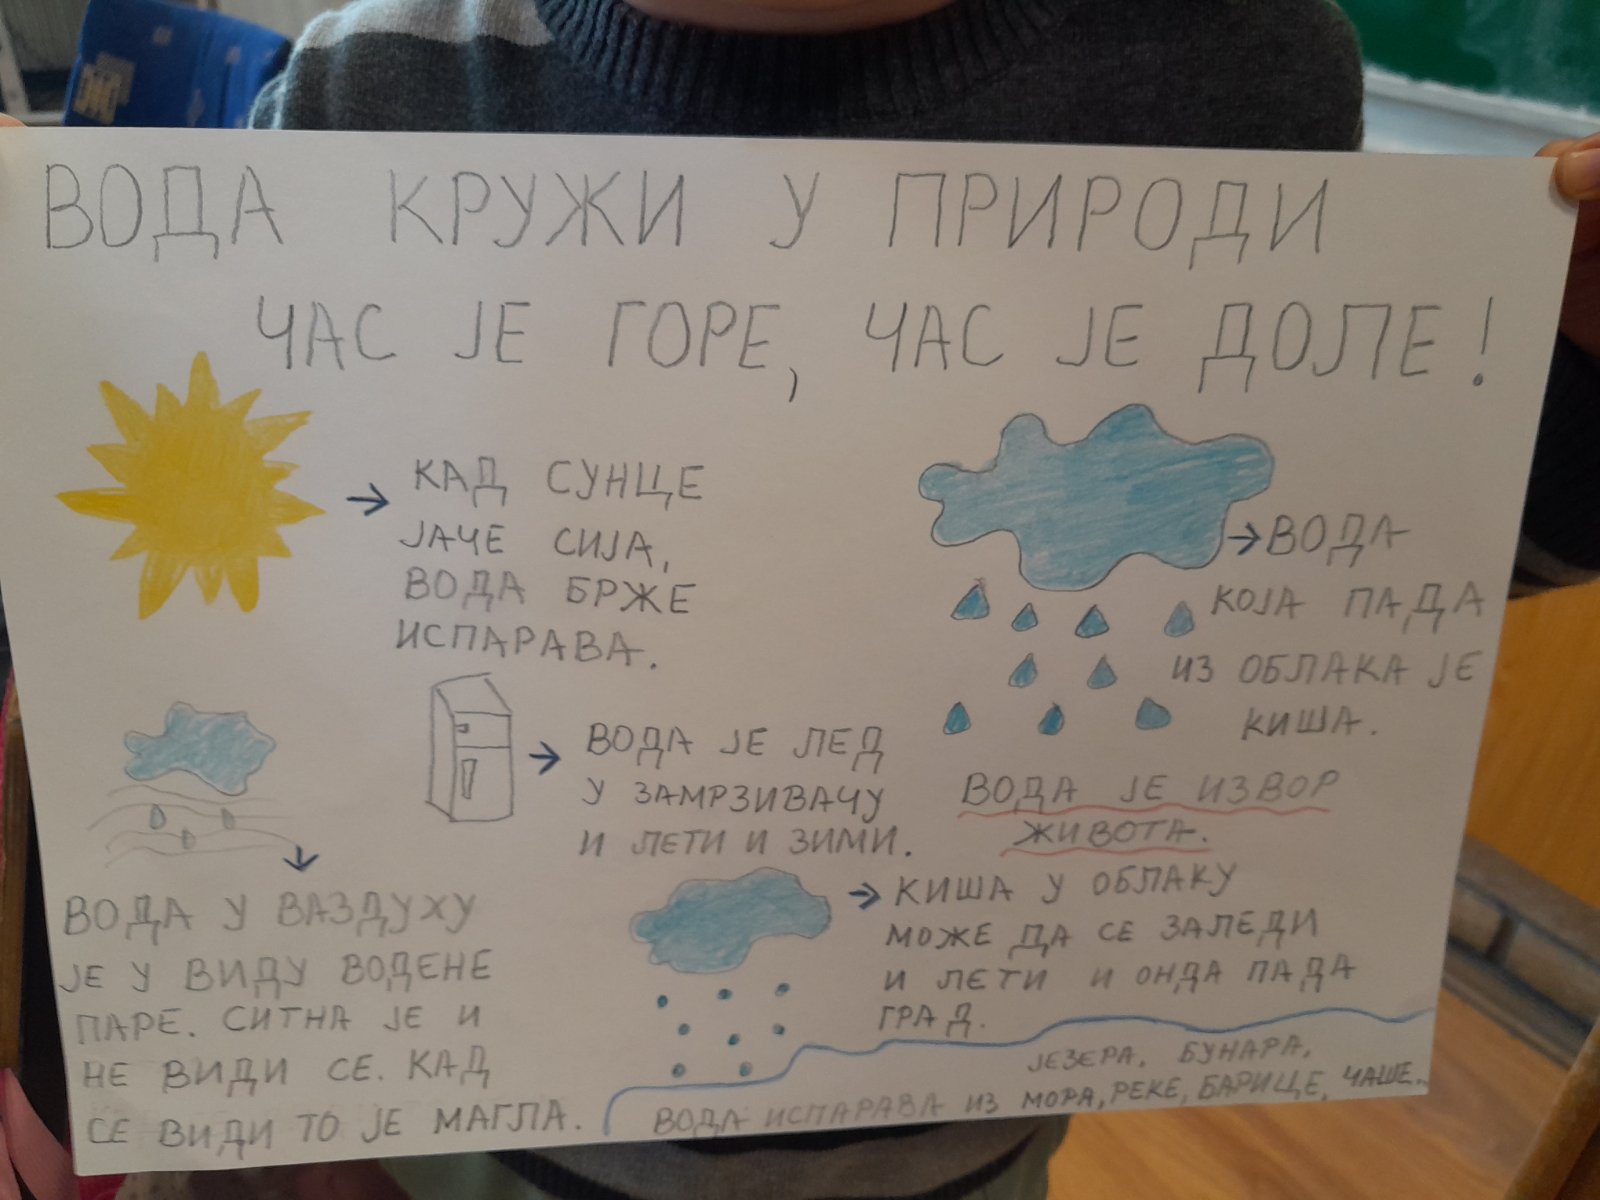 ВОДА КРУЖИ У ПРИРОДИ
ЧАС ЈЕ ГОРЕ, ЧАС ЈЕ ДОЛЕ!
КАД СУНЦЕ
ЈАЧЕ СИЈА,
ВОДА БРЖЕ
ИСПАРАВА.
ВОДА
КОЈА ПАДА
ИЗ ОБЛАКА ЈЕ
КИША.
ВОДА ЈЕ ЛЕД
У ЗАМРЗИВАЧУ
И ЛЕТИ И ЗИМИ.
ВОДА ЈЕ ИЗВОР
ЖИВОТА.
ВОДА У ВАЗДУХУ
ЈЕ У ВИДУ ВОДЕНЕ
ПАРЕ. СИТНА ЈЕ И
НЕ ВИДИ СЕ. КАД
СЕ ВИДИ ТО ЈЕ МАГЛА.
КИША У ОБЛАКУ
МОЖЕ ДА СЕ ЗАЛЕДИ
И ЛЕТИ И ОНДА ПАДА
ГРАД.
ЈЕЗЕРА, БУНАРА,
ВОДА ИСПАРАВА ИЗ МОРА, РЕКЕ, БАРИЦЕ, ЧАШЕ..